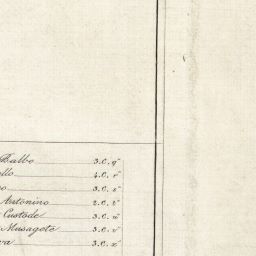 Balbo 3.C.q
llo 4.C.r
o 3.C.s
Antonino 2.C.t
Custode 3.C.u
Musagete 3.C.v
va 3.C.x